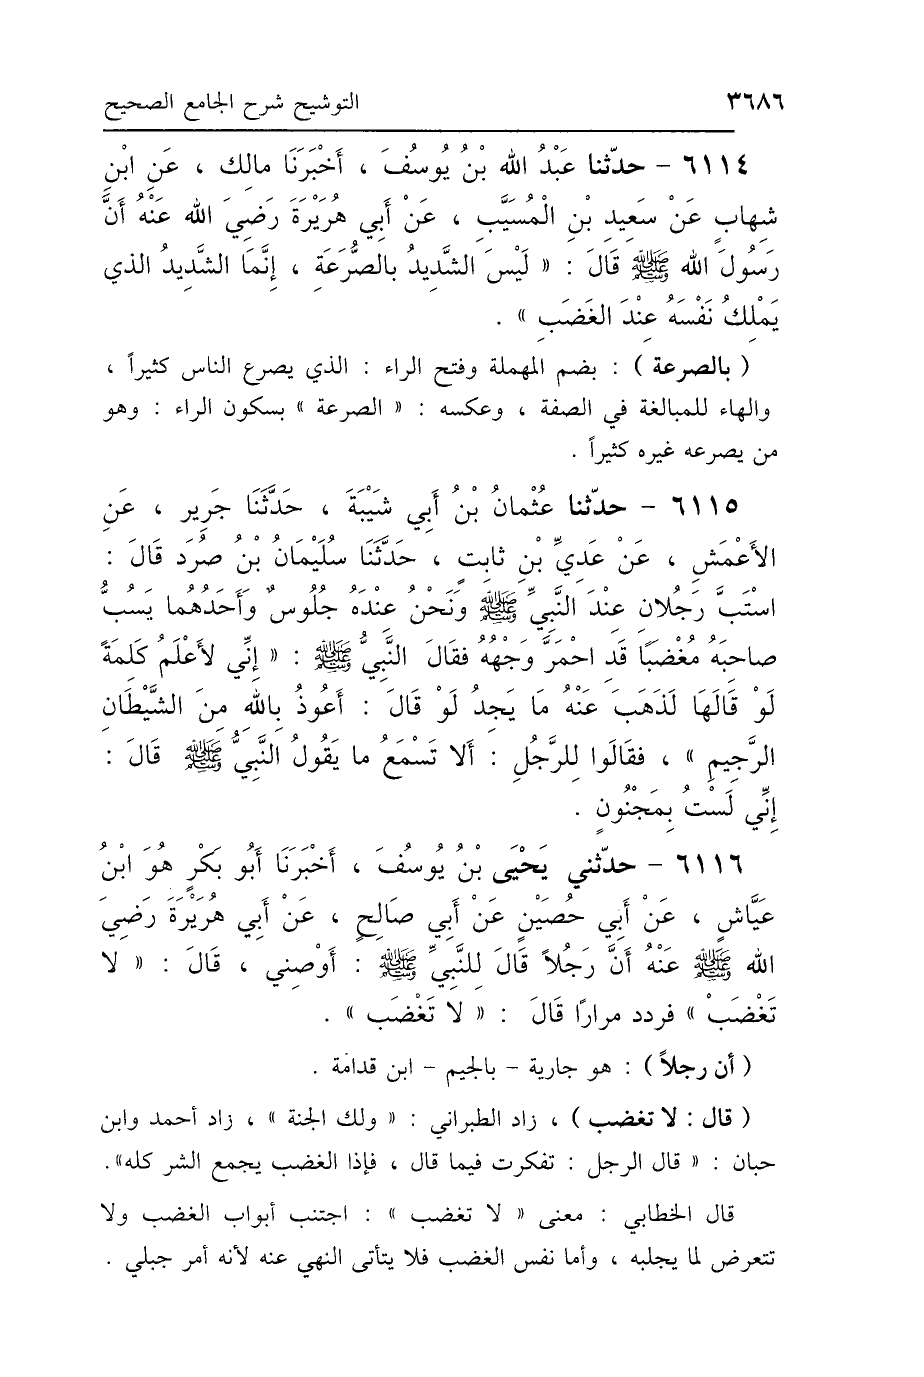 ٣٦٨٦ التوشيح شرح الجامع الصحيح
٦١١٤ - حدّثنا عَبْدُ الله بْنُ يُوسُفَ ، أَخْبَرَنَا مالك ، عَنِ ابْنِ
شهابٍ عَنْ سَعِيدِ بْنِ الْمُسَيَّبِ ، عَنْ أَبِي هُرَيْرَةَ رَضِيَ الله عَنْهُ أَنَّ
رَسُولَ الله ﷺ قَالَ : « لَيْسَ الشَّدِيدُ بالصُّرَعَةِ ، إِنَّمَا الشَّدِيدُ الذي
يَمْلِكُ نَفْسَهُ عِنْدَ الغَضَبِ » .
( بالصرعة ) : بضم المهملة وفتح الراء : الذي يصرع الناس كثيراً ،
والهاء للمبالغة في الصفة ، وعكسه : « الصرعة » بسكون الراء : وهو
من يصرعه غيره كثيراً .
٦١١٥ - حدّثنا عُثْمانُ بْنُ أَبِي شَيْبَةَ ، حَدَّثَنَا جَرِير ، عَنِ
الأَعْمَشِ ، عَنْ عَدِيِّ بْنِ ثابتٍ ، حَدَّثَنَا سُلَيْمَانُ بْنُ صُرَد قَالَ :
اسْتَبَّ رَجُلانِ عِنْدَ النَّبِيِّ ﷺ وَنَحْنُ عِنْدَهُ جُلُوسٌ وَأَحَدُهُما يَسُبُّ
صاحِبَهُ مُغْضَبًا قَدِ احْمَرَّ وَجْهُهُ فقَالَ النَّبِيُّ ﷺ : « إِنِّي لأَعْلَمُ كَلِمَةً
لَوْ قَالَهَا لَذَهَبَ عَنْهُ مَا يَجِدُ لَوْ قَالَ : أَعُوذُ بِاللهِ مِنَ الشَّيْطَانِ
الرَّجِيمِ » ، فقَالُوا لِلرَّجُلِ : أَلا تَسْمَعُ ما يَقُولُ النَّبِيُّ ﷺ قَالَ :
إِنِّي لَسْتُ بِمَجْنُونٍ .
٦١١٦ - حدّثني يَحْيَى بْنُ يُوسُفَ ، أَخْبَرَنَا أَبُو بَكْرٍ هُوَ ابْنُ
عَيَّاشٍ ، عَنْ أَبِي حُصَيْنٍ عَنْ أَبِي صَالِحٍ ، عَنْ أَبِي هُرَيْرَةَ رَضِيَ
الله ﷺ عَنْهُ أَنَّ رَجُلاً قَالَ لِلنَّبِيِّ ﷺ : أَوْصِنِي ، قَالَ : « لا
تَغْضَبْ » فردد مرارًا قَالَ : « لا تَغْضَب » .
( أن رجلاً ) : هو جارية - بالجيم - ابن قدامة .
( قال : لا تغضب ) ، زاد الطبراني : « ولك الجنة » ، زاد أحمد وابن
حبان : « قال الرجل : تفكرت فيما قال ، فإذا الغضب يجمع الشر كله».
قال الخطابي : معنى « لا تغضب » : اجتنب أبواب الغضب ولا
تتعرض لما يجلبه ، وأما نفس الغضب فلا يتأتى النهي عنه لأنه أمر جبلي .